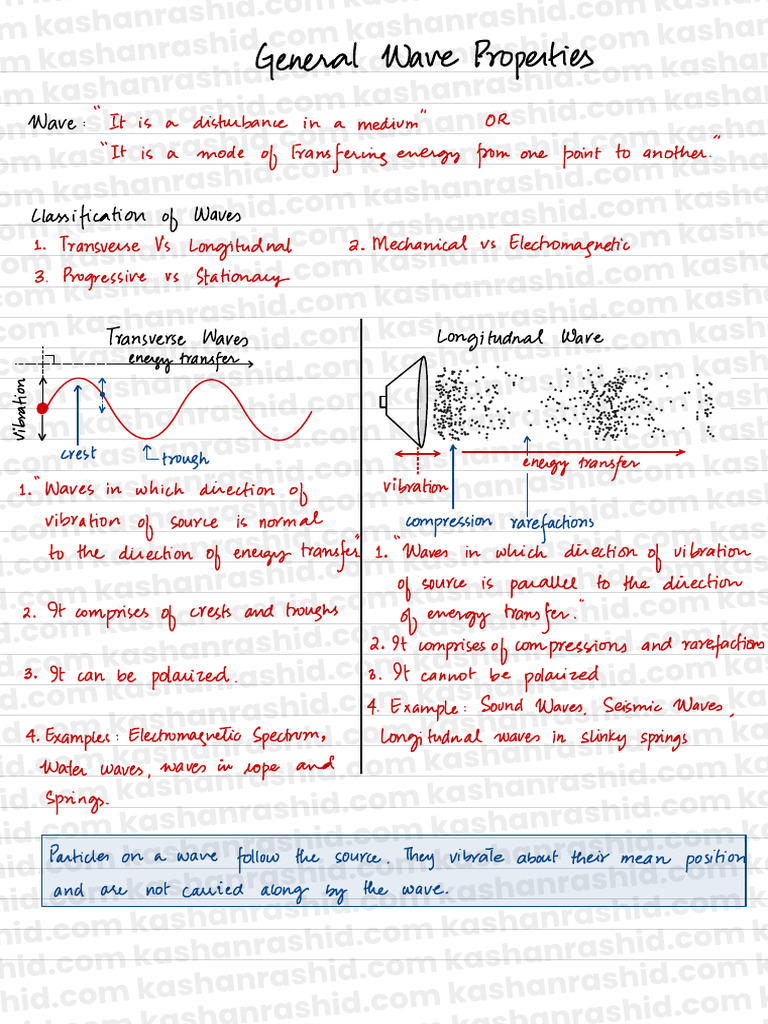 General Wave Properties
Wave: "It is a disturbance in a medium" OR
"It is a mode of Transfering energy from one point to another."
Classification of Waves
1. Transverse Vs Longitudnal 2. Mechanical vs Electromagnetic
3. Progressive vs Stationary
Transverse Waves
energy transfer
vibration
crest
trough
1. "Waves in which direction of
vibration of source is normal
to the direction of energy transfer"
2. It comprises of crests and troughs
3. It can be polarized.
4. Examples: Electromagnetic Spectrum,
Water waves, waves in rope and
Springs.
Longitudnal Wave
energy transfer
vibration
compression rarefactions
1. "Waves in which direction of vibration
of source is parallel to the direction
of energy transfer."
2. It comprises of compressions and rarefactions
3. It cannot be polarized
4. Example: Sound Waves, Seismic Waves,
Longitudnal waves in slinky springs
Particles on a wave follow the source. They vibrate about their mean position
and are not carried along by the wave.
kashanrashid.com